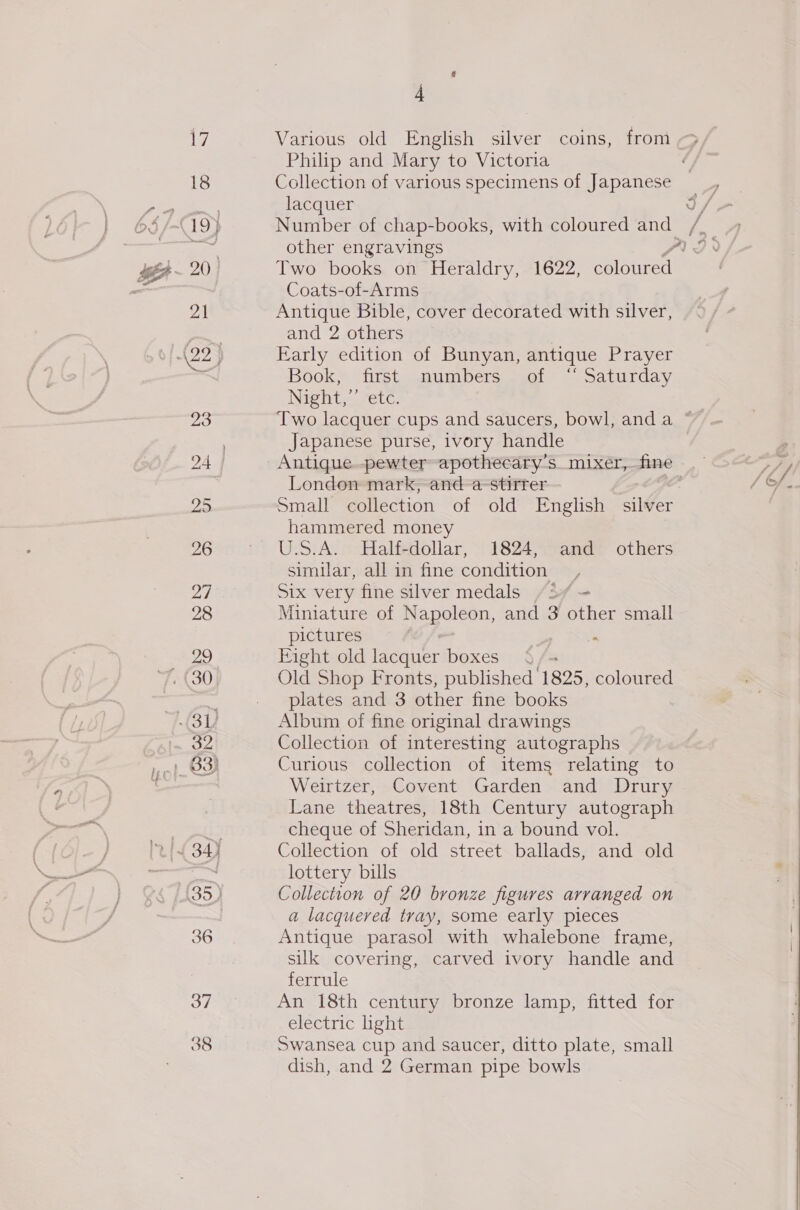 4
17 Various old English silver coins, from
Philip and Mary to Victoria
18 Collection of various specimens of Japanese
lacquer
19 Number of chap-books, with coloured and
other engravings
20 Two books on Heraldry, 1622, coloured
Coats-of-Arms
21 Antique Bible, cover decorated with silver,
and 2 others
22 Early edition of Bunyan, antique Prayer
Book, first numbers of “Saturday
Night,” etc.
23 Two lacquer cups and saucers, bowl, and a
Japanese purse, ivory handle
24 Antique pewter apothecary's mixer, fine
London mark, and a stirrer
25 Small collection of old English silver
hammered money
26 U.S.A. Half-dollar, 1824, and others
similar, all in fine condition
27 Six very fine silver medals
28 Miniature of Napoleon, and 3 other small
pictures
29 Eight old lacquer boxes
30 Old Shop Fronts, published 1825, coloured
plates and 3 other fine books
31 Album of fine original drawings
32 Collection of interesting autographs
33 Curious collection of items relating to
Weirtzer, Covent Garden and Drury
Lane theatres, 18th Century autograph
cheque of Sheridan, in a bound vol.
34 Collection of old street ballads, and old
lottery bills
35 Collection of 20 bronze figures arranged on
a lacquered tray, some early pieces
36 Antique parasol with whalebone frame,
silk covering, carved ivory handle and
ferrule
37 An 18th century bronze lamp, fitted for
electric light
38 Swansea cup and saucer, ditto plate, small
dish, and 2 German pipe bowls